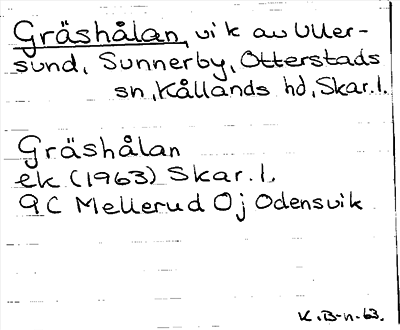 Gräshålan, vik av Uller-
sund, Sunnerby, Otterstads
sn, Kållands hd, Skar. l.
Gräshålan
ek (1963) Skar. l.
9C Mellerud 0j Odensvik
K. B-n -63.